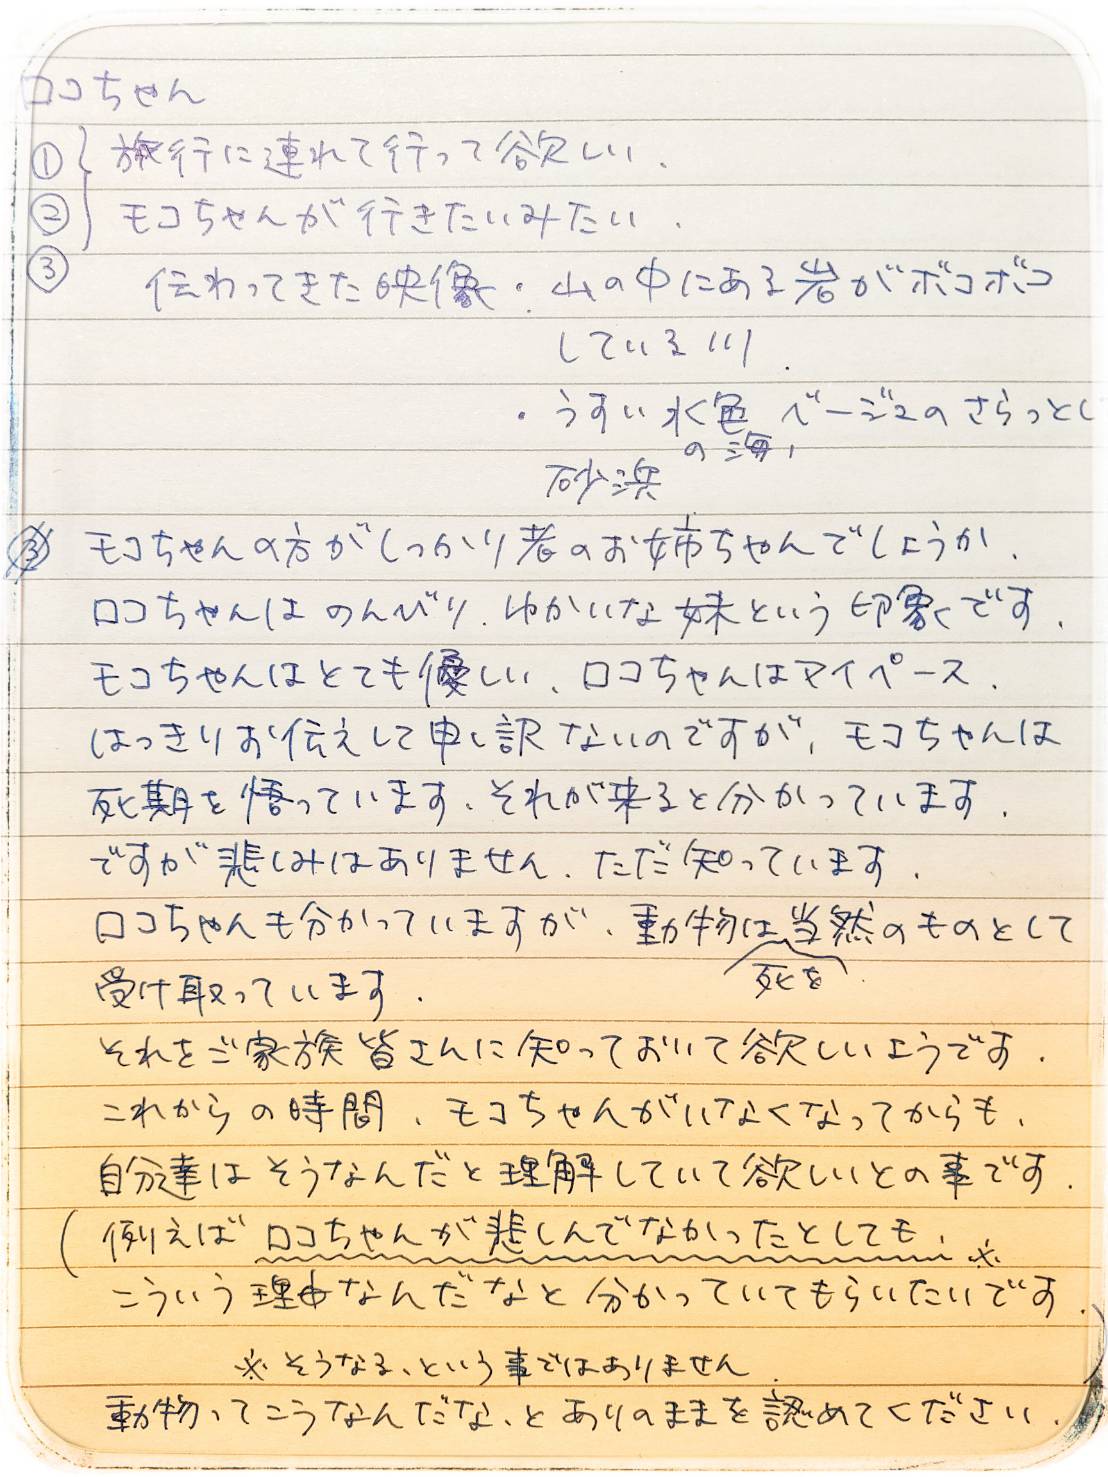 ロコちゃん
① 旅行に連れて行って欲しい.
② モコちゃんが行きたいみたい.
③ 伝わってきた映像・山の中にある岩がボコボコ
している川.
・うすい水色の海, ベージュのさらっとし
砂浜
③ モコちゃんの方がしっかり者のお姉ちゃんでしょうか.
ロコちゃんはのんびり、ゆかいな妹という印象です.
モコちゃんはとても優しい、ロコちゃんはマイペース.
はっきりお伝えして申し訳ないのですが、モコちゃんは
死期を悟っています、それが来ると分かっています.
ですが悲しみはありません、ただ知っています.
ロコちゃんも分かっていますが、動物は死を当然のものとして
受け取っています.
それをご家族皆さんに知っておいて欲しいようです.
これからの時間、モコちゃんがいなくなってからも、
自分達はそうなんだと理解していて欲しいとの事です.
(例えばロコちゃんが悲しんでなかったとしても、※
こういう理由なんだなと分かっていてもらいたいです.)
※そうなる、という事ではありません.
動物ってこうなんだな、とありのままを認めてください.